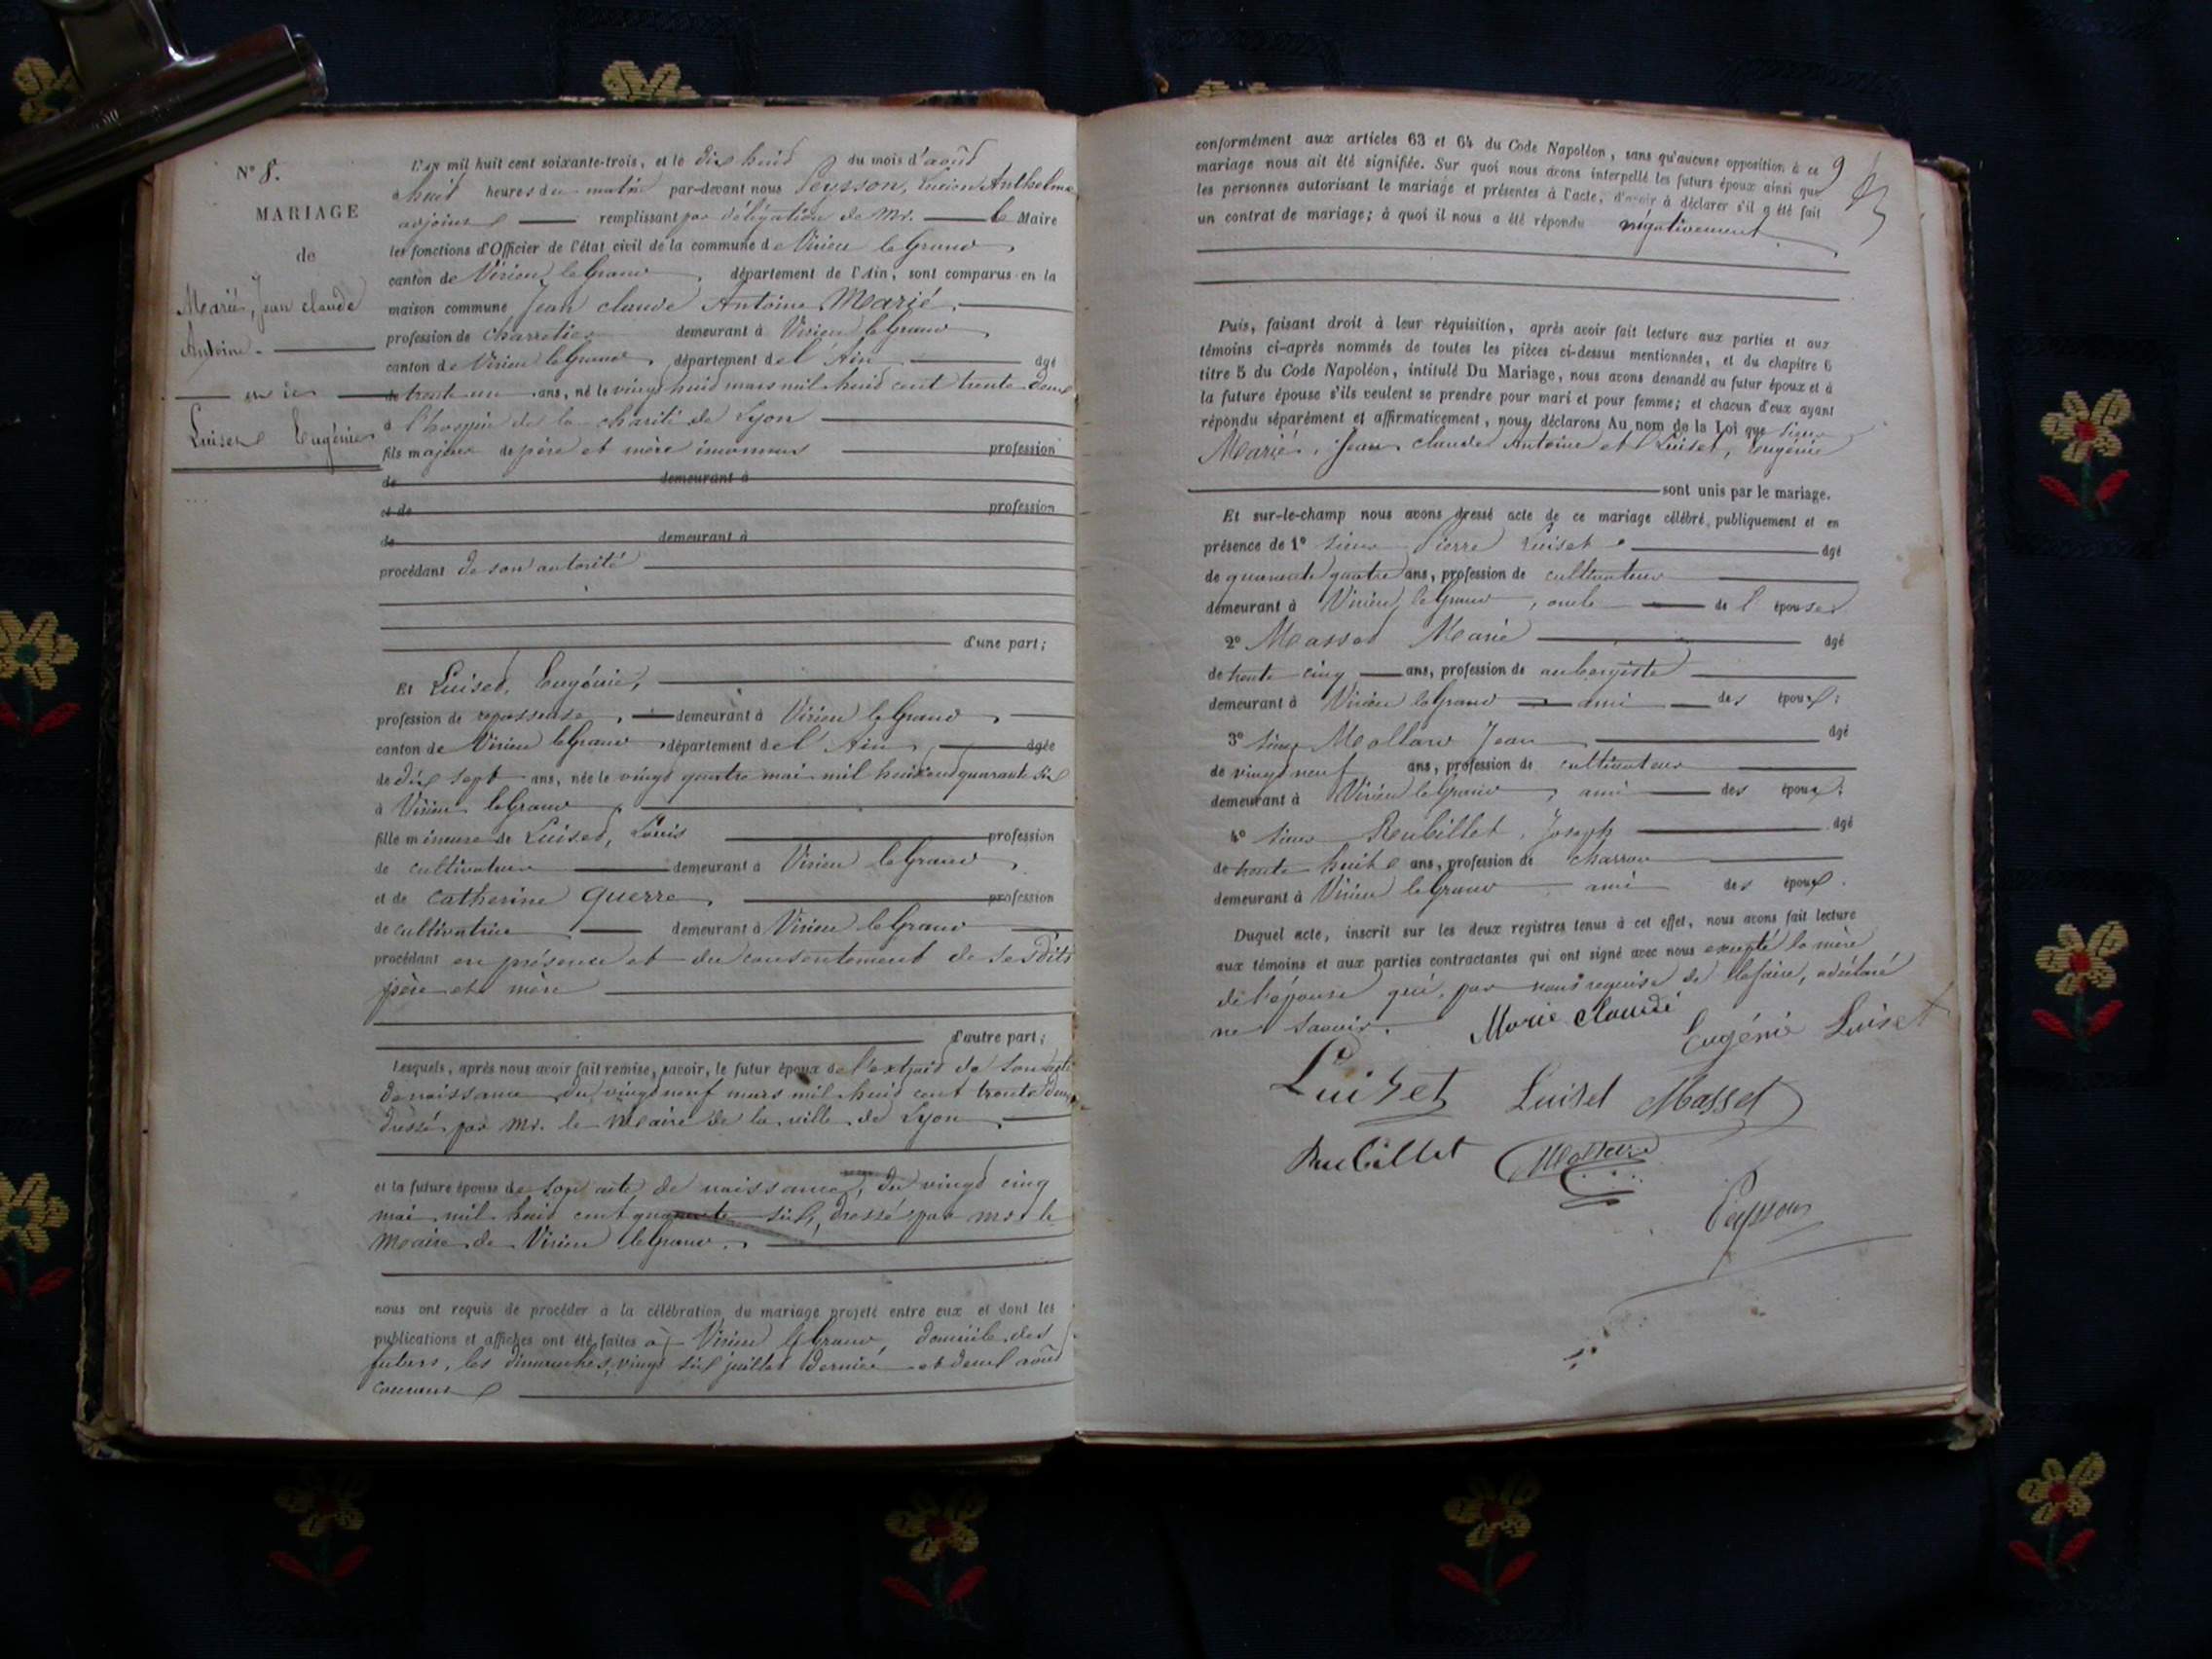 N° 8.
MARIAGE
de
Marié, Jean claude
Antoine
et de
Luiset Eugénie
L'an mil huit cent soixante-trois, et le dix huit du mois d'août
huit heures du matin par-devant nous Peysson, Lucien Anthelme
adjoint remplissant par délégation de Mr. le Maire
les fonctions d'Officier de l'état civil de la commune de Virieu le Grand,
canton de Virieu le Grand, département de l'Ain, sont comparus en la
maison commune Jean claude Antoine Marié,
profession de charretier demeurant à Virieu le Grand,
canton de Virieu le Grand, département de l'Ain âgé
de trente un ans, né le vingt huit mars mil huit cent trente deux
à l'hospice de la charité de Lyon
fils majeur de père et mère inconnus profession
de demeurant à
et de profession
de demeurant à
procédant de son autorité
d'une part;
Et Luiset, Eugénie,
profession de repasseuse, demeurant à Virieu le Grand,
canton de Virieu le Grand département de l'Ain, âgée
de dix sept ans, née le vingt quatre mai mil huit cent quarante six
à Virieu le Grand,
fille mineure de Luiset, Louis profession
de cultivateur demeurant à Virieu le Grand,
et de Catherine Guerre, profession
de cultivatrice demeurant à Virieu le Grand
procédant en présence et du consentement de ses dits
père et mère
d'autre part;
Lesquels, après nous avoir fait remise, savoir, le futur époux de l'extrait de son acte
de naissance du vingt neuf mars mil huit cent trente deux
dressé par Mr. le Maire de la ville de Lyon,
et la future épouse de son acte de naissance, du vingt cinq
mai mil huit cent quarante six, dressé par Mr le
Maire de Virieu le Grand.
nous ont requis de procéder à la célébration du mariage projeté entre eux et dont les
publications et affiches ont été faites à Virieu le Grand, domicile des
futurs, les dimanches, vingt six juillet dernier et deux août
courant
9
conformément aux articles 63 et 64 du Code Napoléon, sans qu'aucune opposition à ce
mariage nous ait été signifiée. Sur quoi nous avons interpellé les futurs époux ainsi que
les personnes autorisant le mariage et présentes à l'acte, d'avoir à déclarer s'il a été fait
un contrat de mariage; à quoi il nous a été répondu négativement.
Puis, faisant droit à leur réquisition, après avoir fait lecture aux parties et aux
témoins ci-après nommés de toutes les pièces ci-dessus mentionnées, et du chapitre 6
titre 5 du Code Napoléon, intitulé Du Mariage, nous avons demandé au futur époux et à
la future épouse s'ils veulent se prendre pour mari et pour femme; et chacun d'eux ayant
répondu séparément et affirmativement, nous déclarons Au nom de la Loi que sieur
Marié, Jean claude Antoine et Luiset, Eugénie
sont unis par le mariage.
Et sur-le-champ nous avons dressé acte de ce mariage célébré publiquement et en
présence de 1° sieur Pierre Luiset âgé
de quarante quatre ans, profession de cultivateur
demeurant à Virieu le Grand, oncle de l'épouse
2° Masset Marie âgé
de trente cinq ans, profession de aubergiste
demeurant à Virieu le Grand ami des époux;
3° sieur Mollard Jean âgé
de vingt neuf ans, profession de cultivateur
demeurant à Virieu le Grand, ami des époux;
4° sieur Reubillet, Joseph âgé
de trente huit ans, profession de charron
demeurant à Virieu le Grand ami des époux.
Duquel acte, inscrit sur les deux registres tenus à cet effet, nous avons fait lecture
aux témoins et aux parties contractantes qui ont signé avec nous excepté la mère
de l'épouse qui, par nous requise de le faire, a déclaré
ne savoir.
Marie Claude
Eugénie Luiset
Luiset Luiset Masset
Reubillet Mollard
Peysson